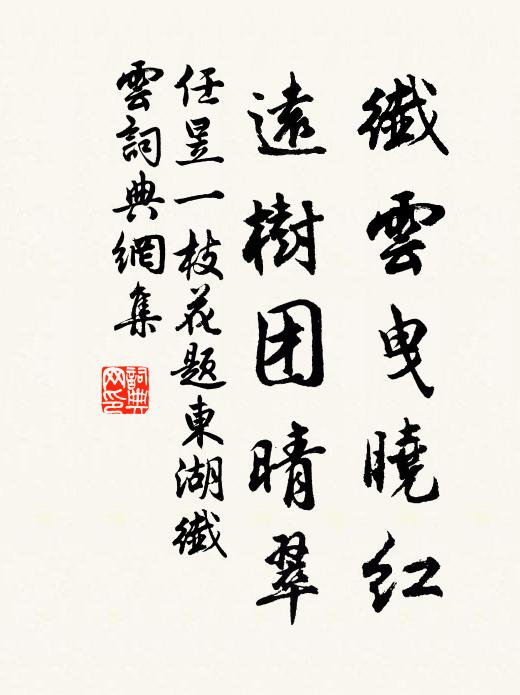 纖雲曳曉红
遠樹团晴翠
任昱一枝花题東湖纖
雲詞典網集
詞典
网印